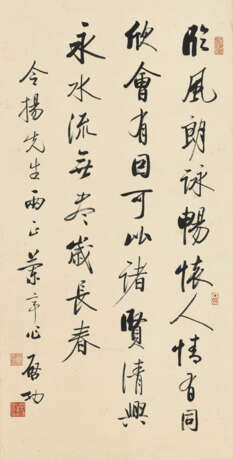 臨風朗詠暢懷人情有同
欣會有因可以諸賢清興
永水流無盡歲長春
令揚先生兩正 啓功